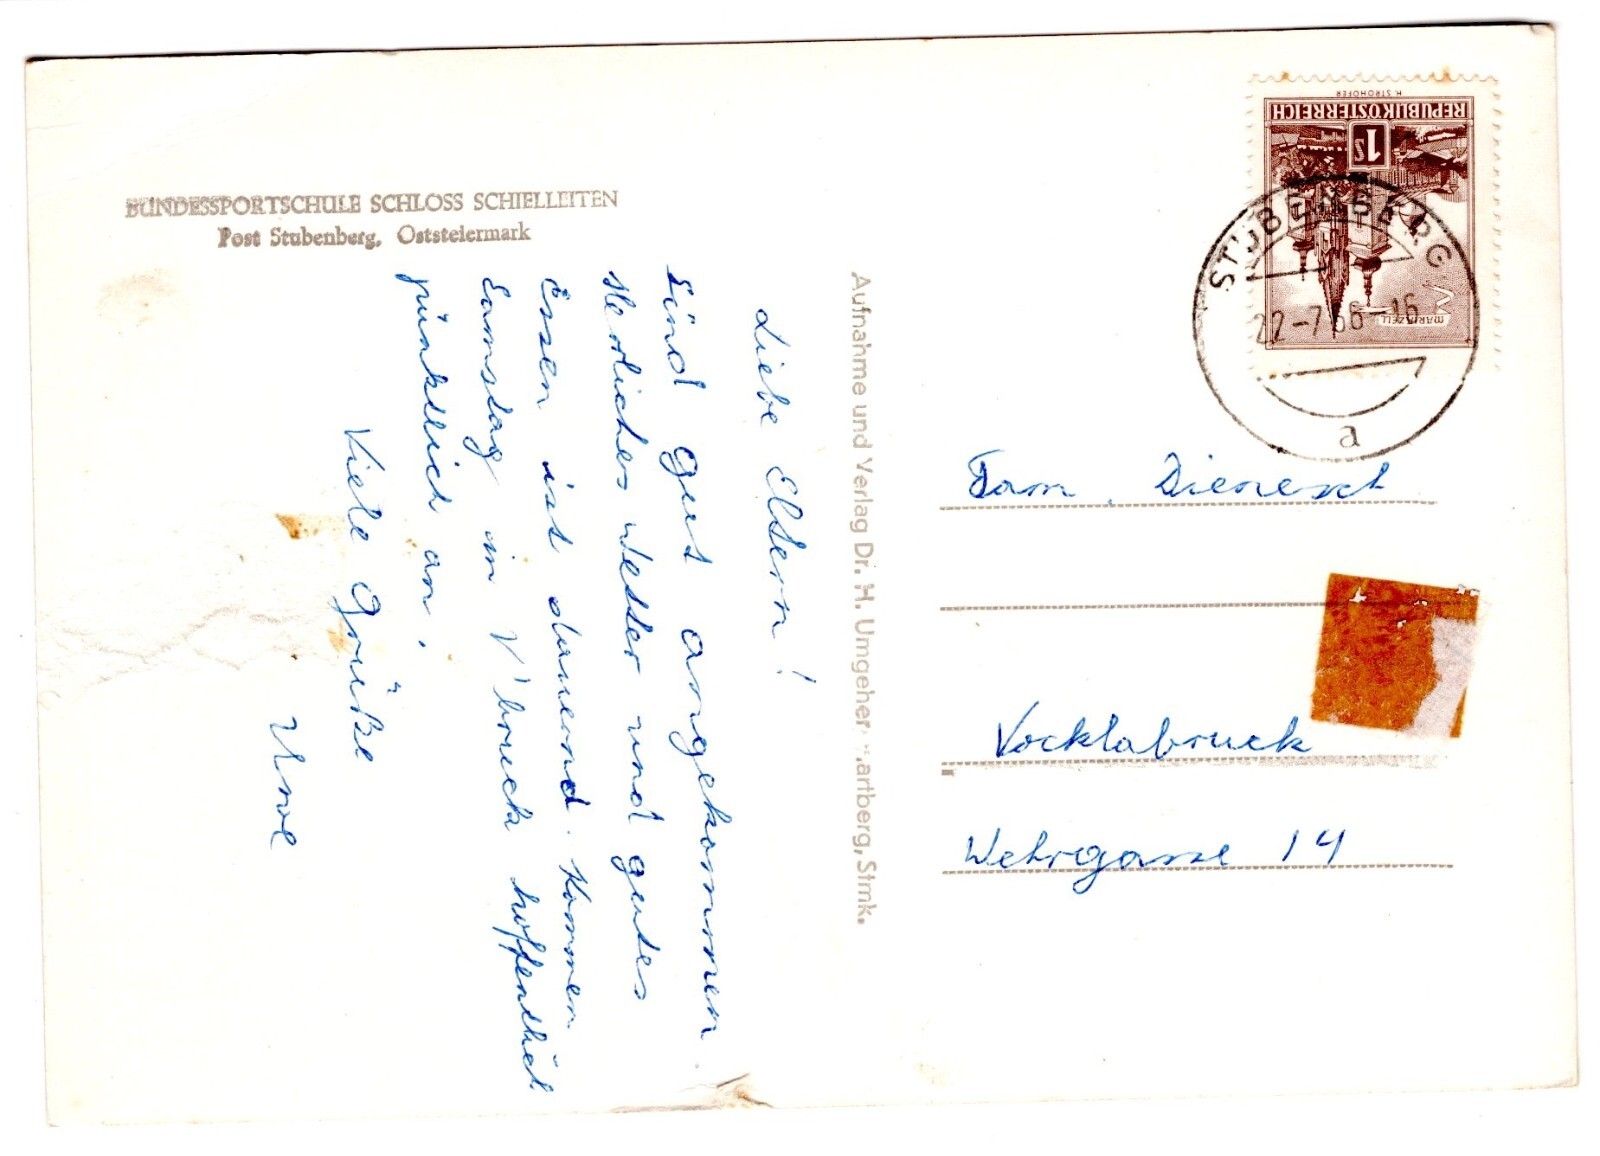 BUNDESSPORTSCHULE SCHLOSS SCHIELLEITEN
Post Stubenberg, Oststeiermark
Liebe Eltern!
Sind gut angekommen.
Herrliches Wetter und gutes
Essen ist dauernd. Kommen
Samstag in V'bruck hoffentlich
pünktlich an.
Viele Grüße
Aufnahme und Verlag Dr. H. Umgeher, Hartberg, Stmk.
H. STROHOFER
REPUBLIK ÖSTERREICH
1 S
MARIAZELL
STUBENBERG
22-7 66-16
a
Fam.
Vöcklabruck
Wehrgasse 14